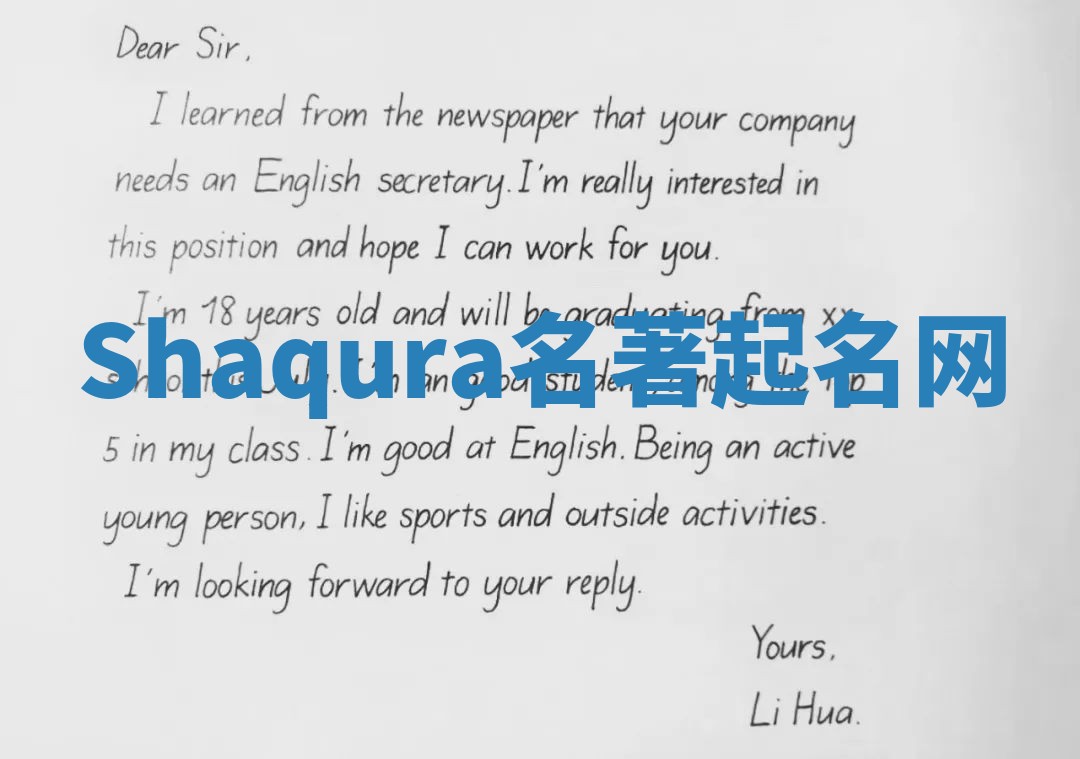 Dear Sir,
I learned from the newspaper that your company
needs an English secretary. I'm really interested in
this position and hope I can work for you.
I'm 18 years old and will be graduating from xx
Shaqura名著起名网
school this July. I'm an good student, among the top
5 in my class. I'm good at English. Being an active
young person, I like sports and outside activities.
I'm looking forward to your reply.
Yours,
Li Hua.